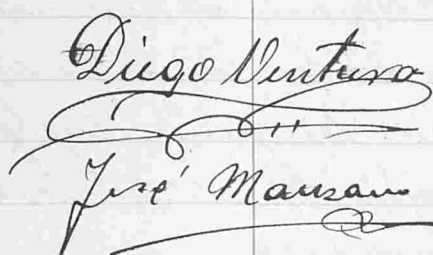 Diego Ventura
José Manzano